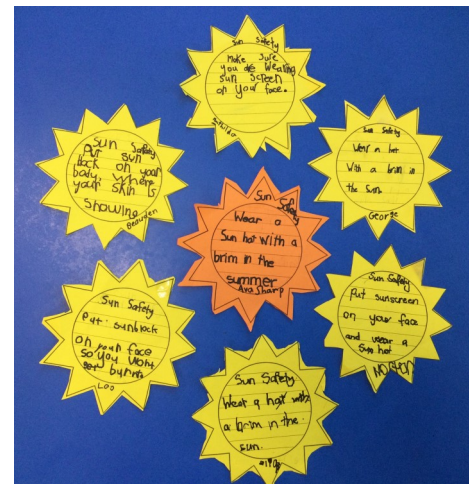 Sun Safety
Make Sure
you are Wearing
sun screen
on your face.
Sun Safety
Put sun
lock on your
body. Where
your skin is
showing
Beauden
Sun Safety
Wear a hat
With a brim in
the sun.
George
Sun Safety
Wear a
Sun hat with a
brim in the
summer
Ava Sharp
Sun Safety
Put sunblock
on your face
so you wont
get burnt
Leo
Sun Safety
Put sunscreen
on your face
and wear a
Sun hat
Sun Safety
Wear a hat with
a brim in the
sun.